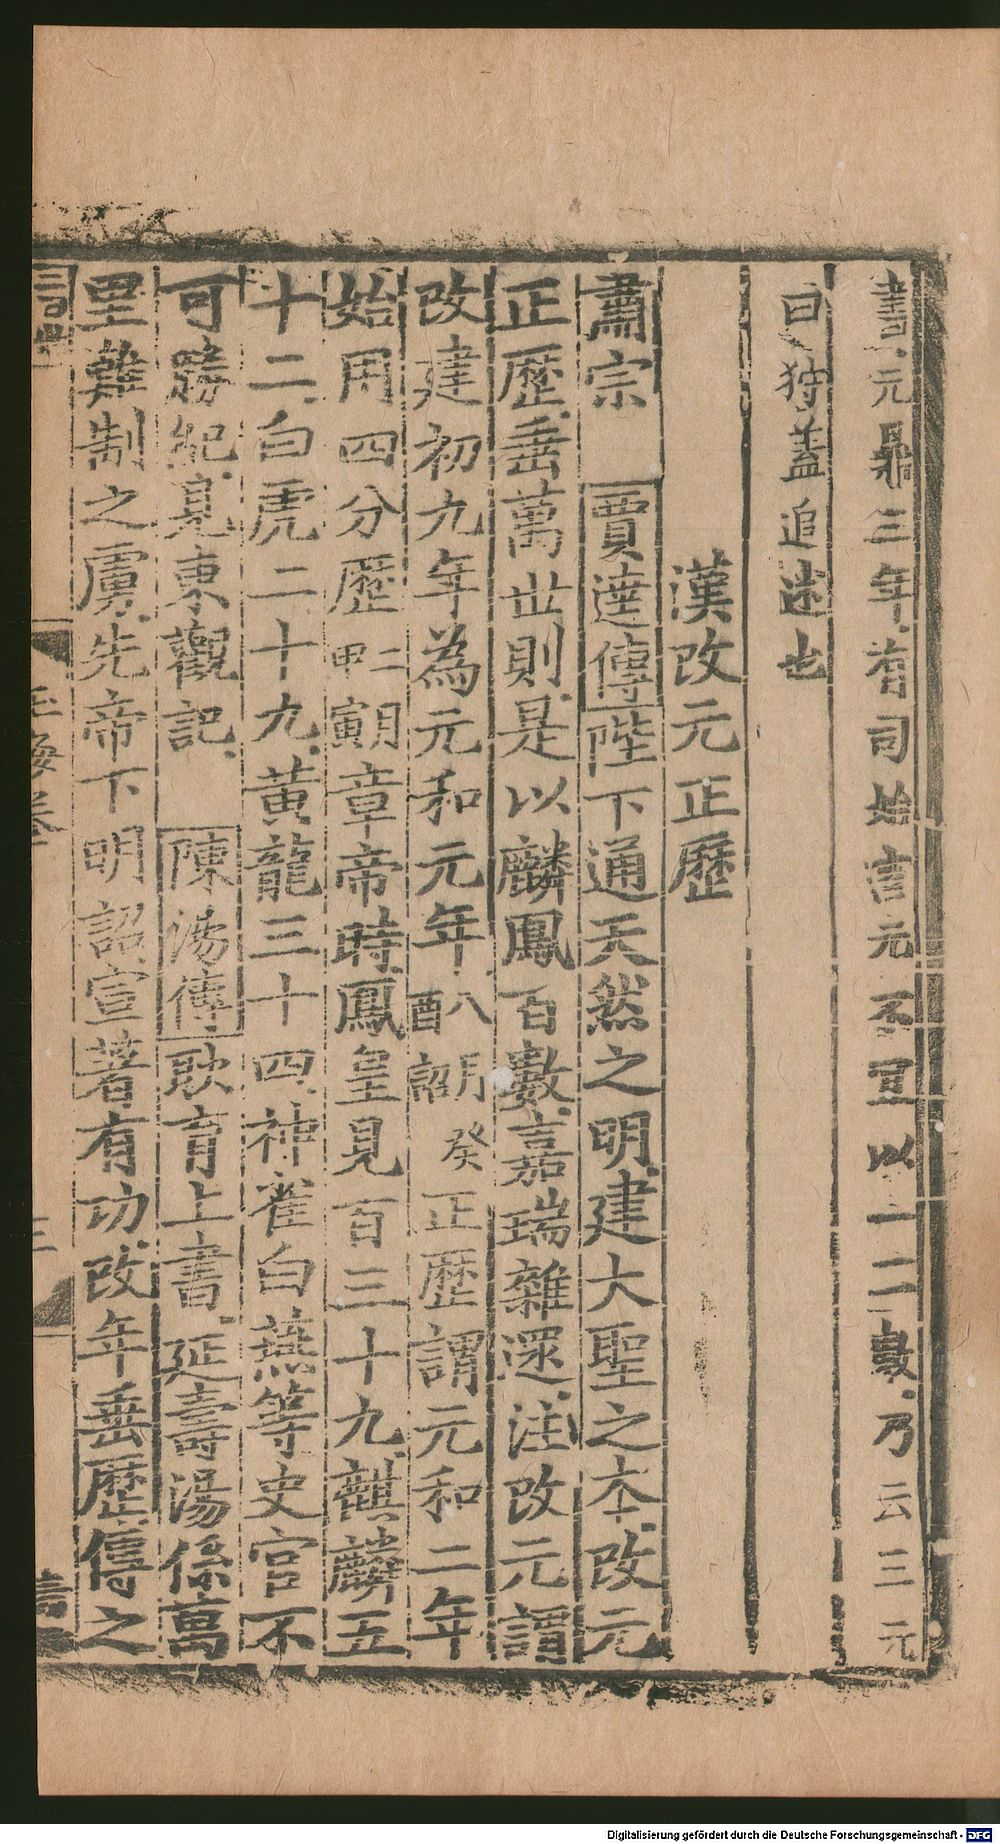 書元鼎三年有司始言元不宜以一二數乃云三元
曰狩蓋追述也
漢改元正歷
肅宗 賈逵傳陛下通天然之明建大聖之本改元
正歷垂萬世則是以麟鳳百數嘉瑞雜遝注改元謂
改建初九年為元和元年八月癸酉詔正歷謂元和二年
始用四分歷二月甲寅章帝時鳳皇見百三十九麒麟五
十二白虎二十九黃龍三十四神雀白燕等史官不
可勝紀見東觀記 陳湯傳耿育上書延壽湯係萬
里難制之虜先帝下明詔宣著有功改年垂歷傳之
玉海卷
三
Digitalisierung gefördert durch die Deutsche Forschungsgemeinschaft - DFG